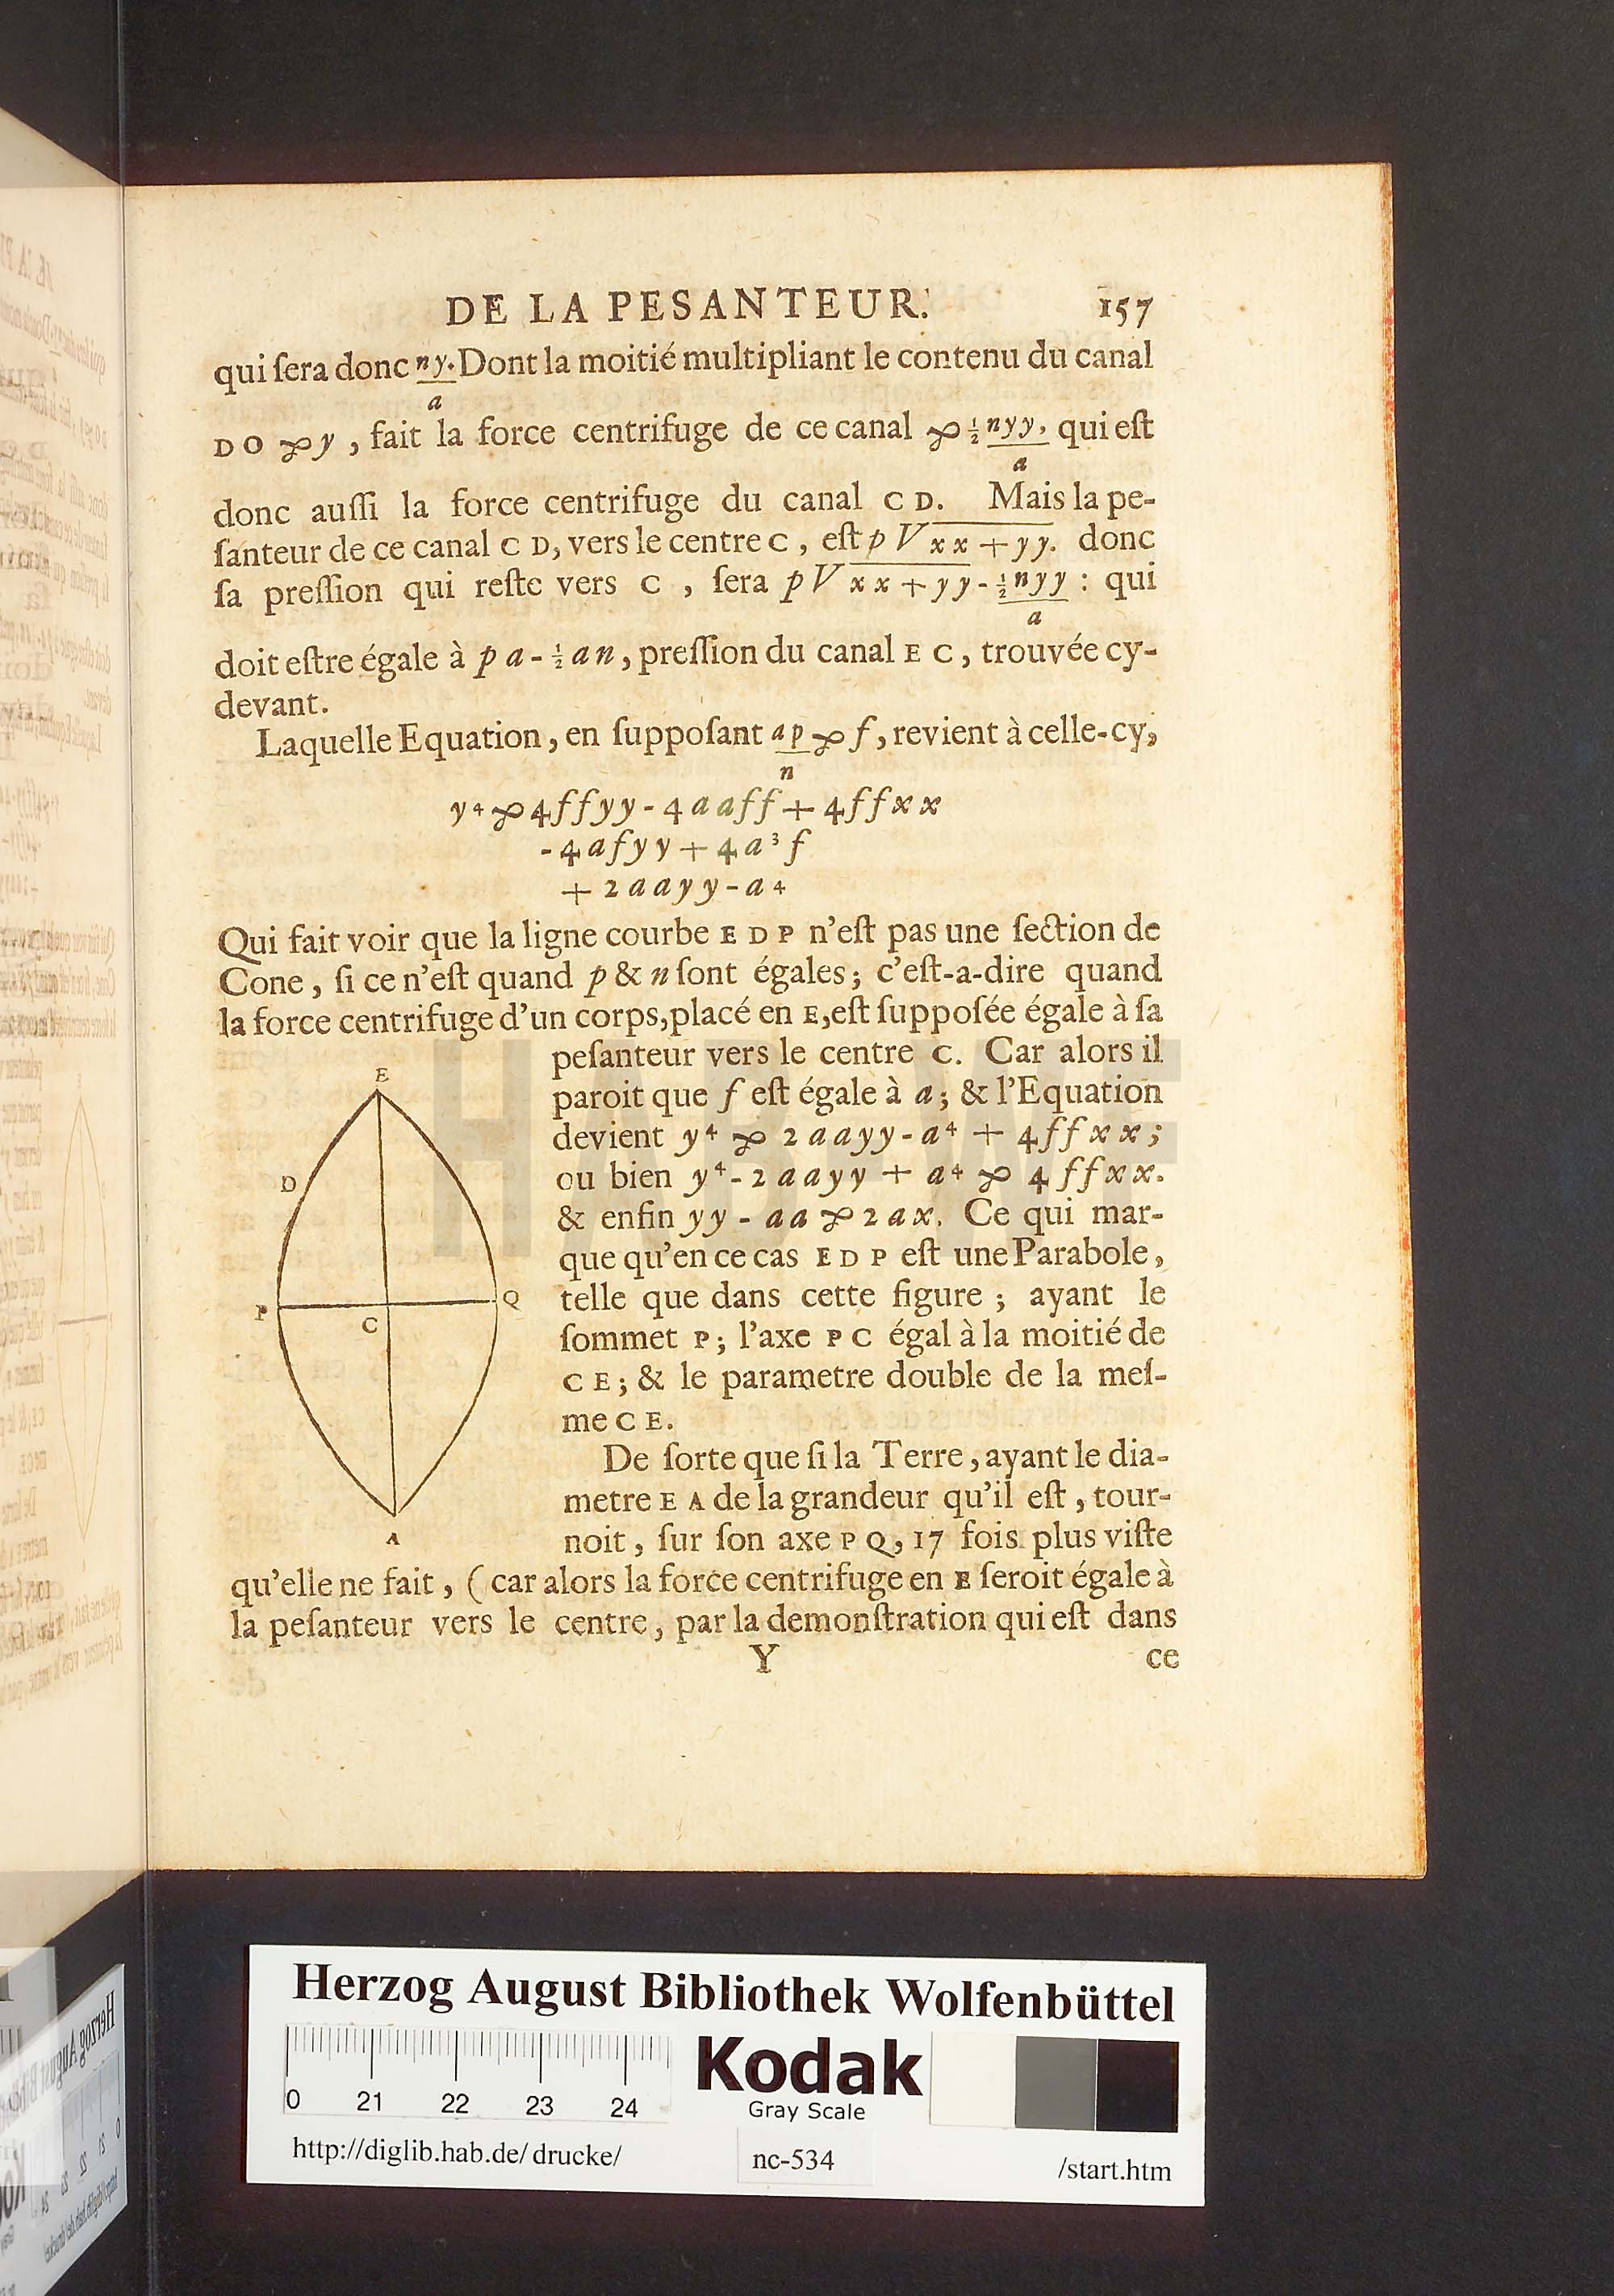 DE LA PESANTEUR. 157
qui ſera donc ny/a. Dont la moitié multipliant le contenu du canal
D O ꝏ y , fait la force centrifuge de ce canal ꝏ ½ nyy/a, qui eſt
donc auſſi la force centrifuge du canal C D. Mais la pe-
ſanteur de ce canal C D, vers le centre C , eſt p V xx + yy. donc
ſa preſſion qui reſte vers C , ſera p V xx + yy - ½ nyy/a : qui
doit eſtre égale à p a - ½ a n, preſſion du canal E C, trouvée cy-
devant.
Laquelle Equation, en ſuppoſant ap/n ꝏ f, revient à celle-cy,
y⁴ ꝏ 4ffyy - 4aaff + 4ffxx
- 4afyy + 4a³f
+ 2aayy - a⁴
Qui fait voir que la ligne courbe E D P n'eſt pas une ſection de
Cone, ſi ce n'eſt quand p & n ſont égales; c'eſt-a-dire quand
la force centrifuge d'un corps, placé en E, eſt ſuppoſée égale à ſa
peſanteur vers le centre C. Car alors il
paroit que f eſt égale à a; & l'Equation
devient y⁴ ꝏ 2aayy - a⁴ + 4ffxx;
ou bien y⁴ - 2aayy + a⁴ ꝏ 4ffxx.
& enfin yy - aa ꝏ 2ax. Ce qui mar-
que qu'en ce cas E D P eſt une Parabole,
telle que dans cette figure ; ayant le
ſommet P; l'axe P C égal à la moitié de
C E; & le parametre double de la meſ-
me C E.
De ſorte que ſi la Terre, ayant le dia-
metre E A de la grandeur qu'il eſt, tour-
noit, ſur ſon axe P Q, 17 fois plus viſte
qu'elle ne fait, ( car alors la force centrifuge en E ſeroit égale à
la peſanteur vers le centre, par la demonſtration qui eſt dans
Y ce
E
D
P
C
Q
A
HAB
Herzog August Bibliothek Wolfenbüttel
0 21 22 23 24
Kodak
Gray Scale
http://diglib.hab.de/ drucke/ nc-534 /start.htm